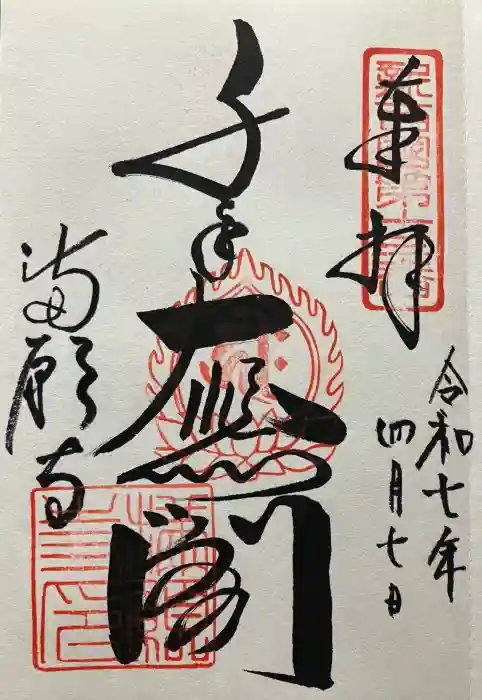 奉拝
令和七年
四月七日
千手大悲閣
満願寺